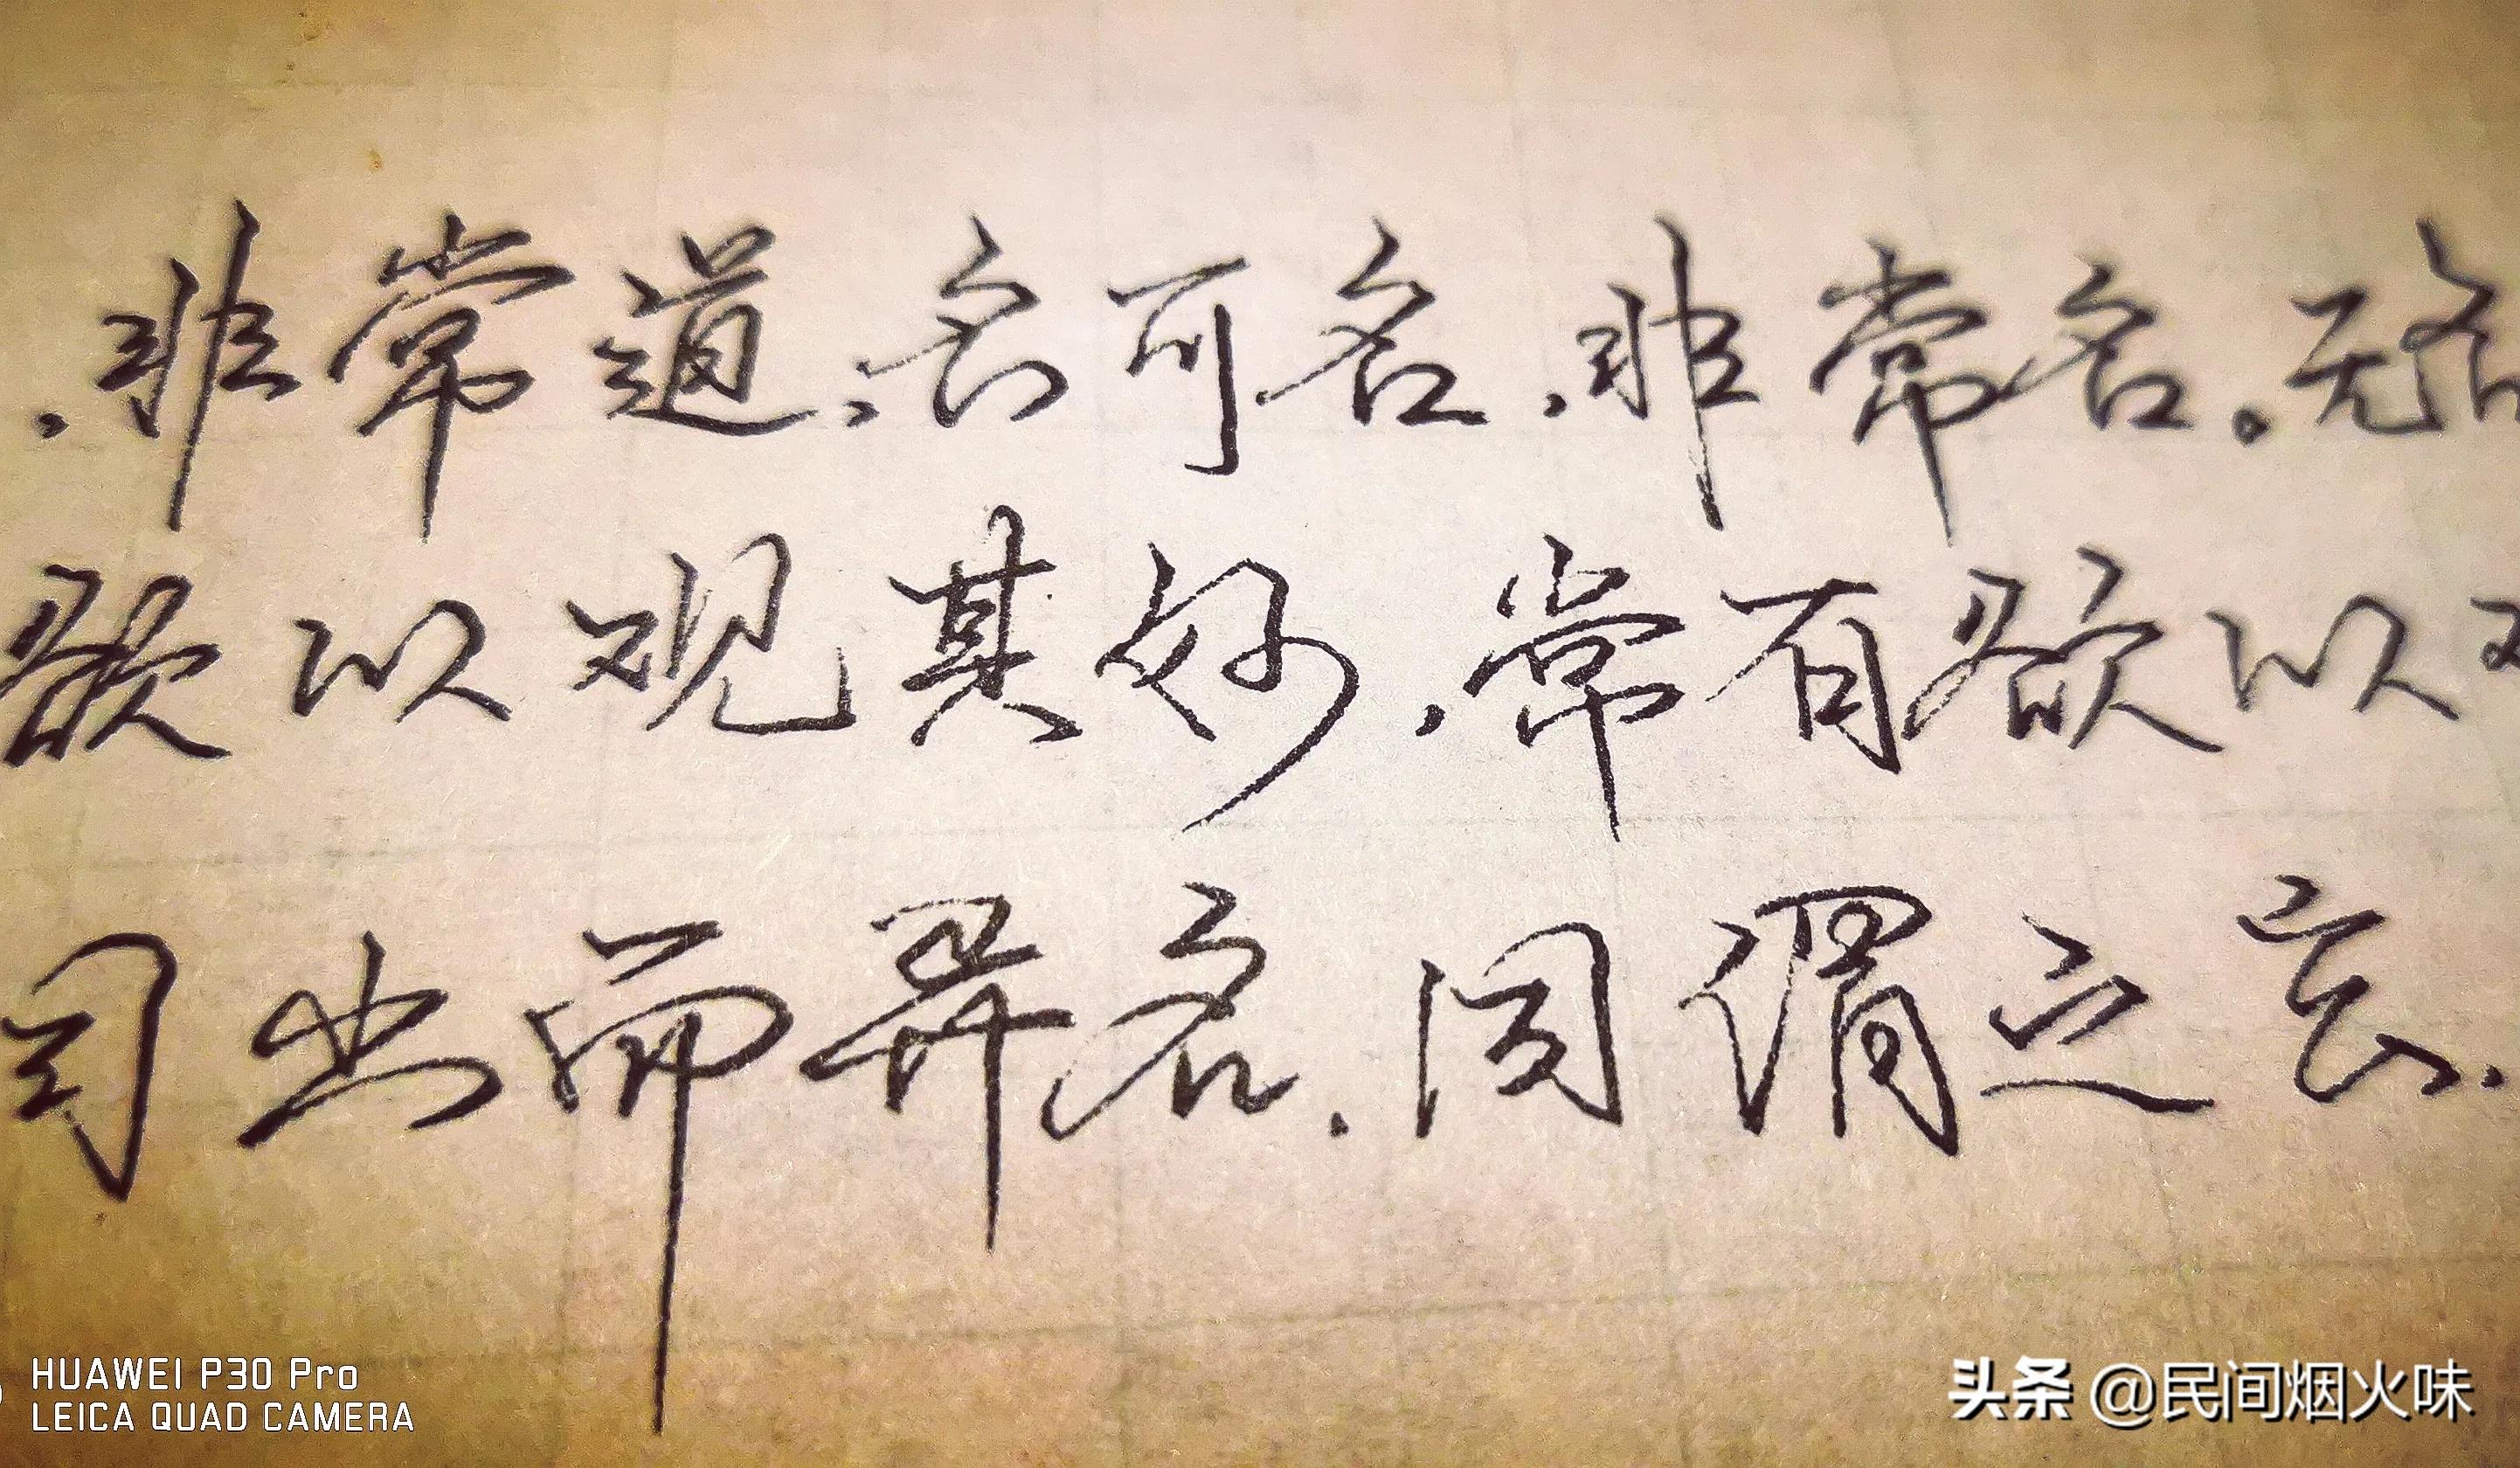 ，非常道，名可名，非常名。无名
欲以观其妙，常有欲以
同出而异名，同谓之玄，
HUAWEI P30 Pro
LEICA QUAD CAMERA
头条 @民间烟火味